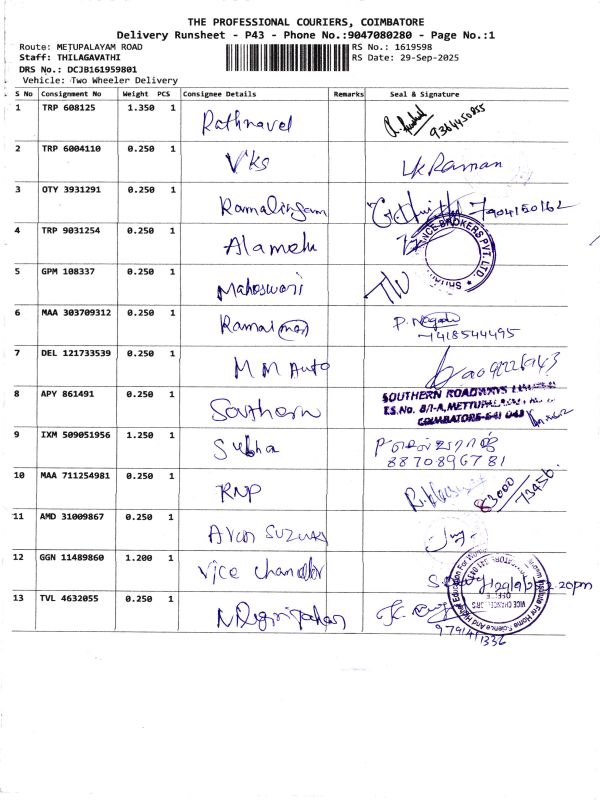 THE PROFESSIONAL COURIERS, COIMBATORE
Delivery Runsheet - P43 - Phone No.:9047080280 - Page No.:1
Route: METUPALAYAM ROAD
RS No.: 1619598
Staff: THILAGAVATHI
RS Date: 29-Sep-2025
DRS No.: DCJB161959801
Vehicle: Two Wheeler Delivery
S No Consignment No Weight PCS Consignee Details Remarks Seal & Signature
1 TRP 608125 1.350 1 Rathnavel
2 TRP 6004110 0.250 1 Vks UK Raman
3 OTY 3931291 0.250 1 Ramalingam 7904150162
4 TRP 9031254 0.250 1 Alamelu
BROKERS PVT. LTD.
5 GPM 108337 0.250 1 Maheswari
6 MAA 303709312 0.250 1 P. Nagesh
7418544495
7 DEL 121733539 0.250 1 M M Auto
8 APY 861491 0.250 1 Southern
SOUTHERN ROADWAYS
T.S.No. 8/1-A, METTUPALAYAM
COIMBATORE-641 043
9 IXM 509051956 1.250 1 Subha
8870896781
10 MAA 711254981 0.250 1 RNP 83000 / 73456
11 AMD 31009867 0.250 1 Avan Suzuki
12 GGN 11489860 1.200 1 Vice Chancellor
VICE CHANCELLORS
OFFICE
13 TVL 4632055 0.250 1